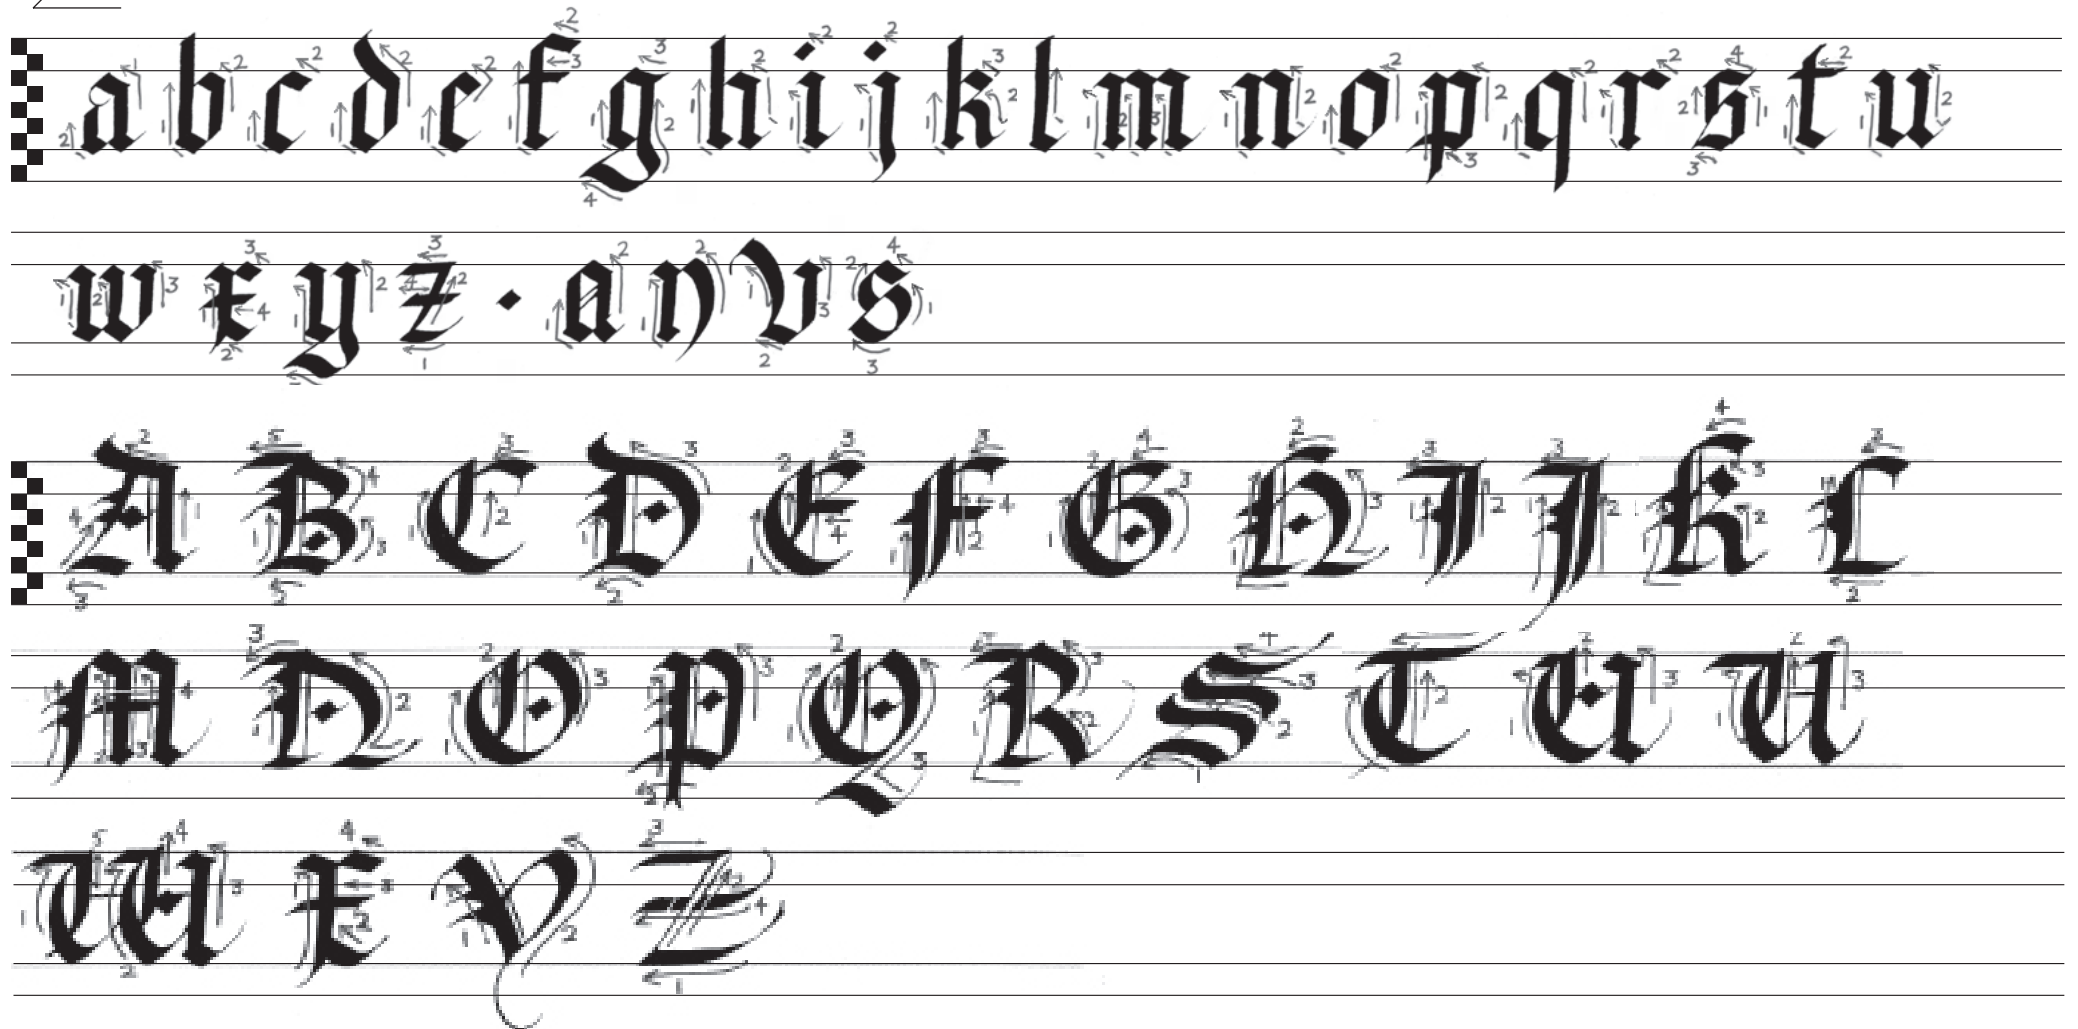 a b c d e f g h i j k l m n o p q r s t u
w x y z · a n v s
A B C D E F G H I J K L
M N O P Q R S T U U
W X Y Z